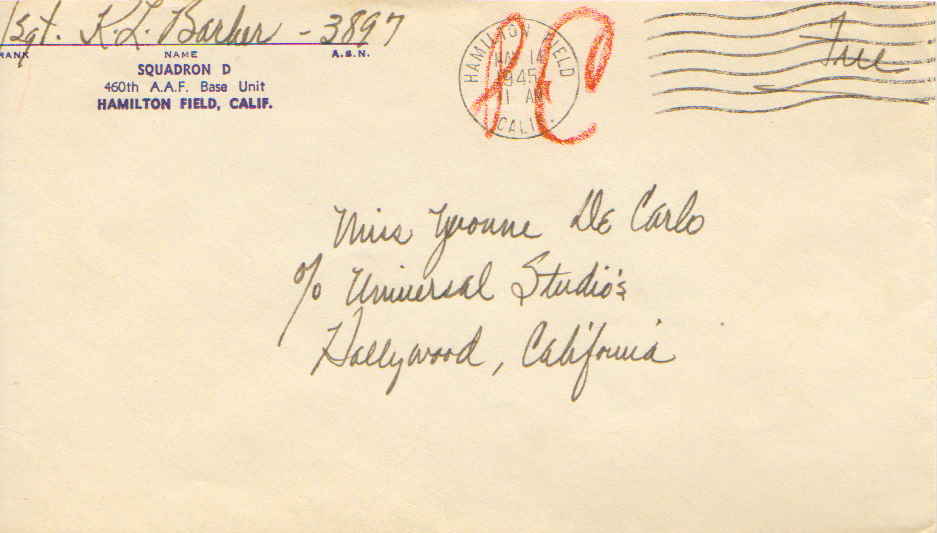 Sgt. K.L. Barker - 3897
RANK NAME A.S.N.
SQUADRON D
460th A.A.F. Base Unit
HAMILTON FIELD, CALIF.
HAMILTON FIELD
14
1945
1 AM
CALIF.
Free
Miss Yvonne De Carlo
c/o Universal Studio's
Hollywood, California